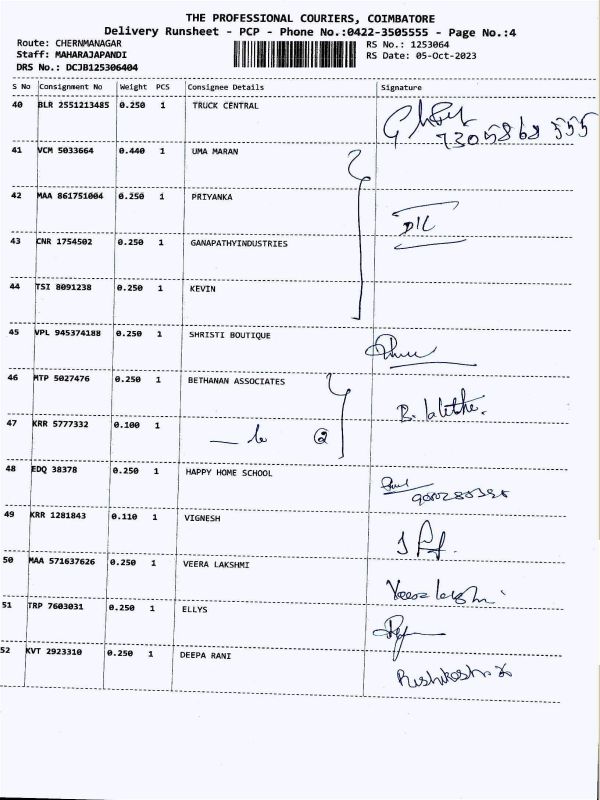 THE PROFESSIONAL COURIERS, COIMBATORE
Delivery Runsheet - PCP - Phone No.:0422-3505555 - Page No.:4
Route: CHERNMANAGAR
Staff: MAHARAJAPANDI
DRS No.: DCJB125306404
RS No.: 1253064
RS Date: 05-Oct-2023
S No Consignment No Weight PCS Consignee Details Signature
40 BLR 2551213485 0.250 1 TRUCK CENTRAL
7305868 555
41 VCM 5033664 0.440 1 UMA MARAN
42 MAA 861751004 0.250 1 PRIYANKA
DIL
43 CNR 1754502 0.250 1 GANAPATHYINDUSTRIES
44 TSI 8091238 0.250 1 KEVIN
45 VPL 945374188 0.250 1 SHRISTI BOUTIQUE
46 MTP 5027476 0.250 1 BETHANAN ASSOCIATES
B. lalitha.
47 KRR 5777332 0.100 1
48 EDQ 38378 0.250 1 HAPPY HOME SCHOOL
49 KRR 1281843 0.110 1 VIGNESH
50 MAA 571637626 0.250 1 VEERA LAKSHMI
Veera lakshmi
51 TRP 7603031 0.250 1 ELLYS
52 KVT 2923310 0.250 1 DEEPA RANI